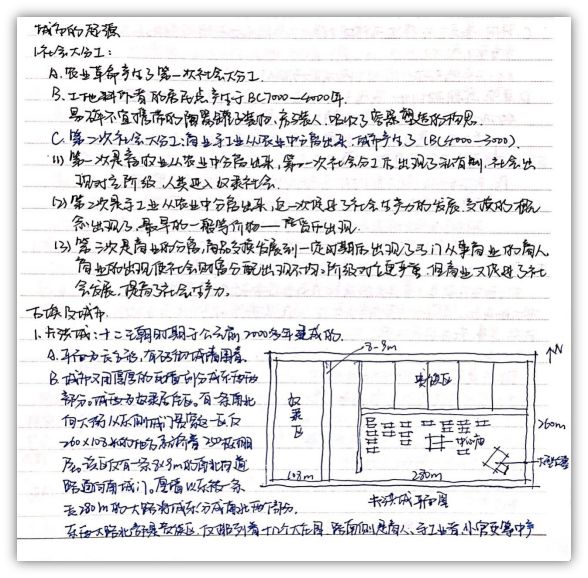 城市的起源
1.社会大分工:
A.农业革命产生了第一次社会大分工.
B.土地耕作者的居民点产生于BC7000—4000年.
易碎不宜携带的陶器罐子装物,房子装人,吸收了容器塑造的构思.
C.第二次社会大分工:商业手工业从农业中分离出来,城市产生了(BC4000-3000).
(1)第一次是畜牧业从农业中分离出来,第一次社会分工后出现了私有制,社会出
现对立阶级,人类进入奴隶社会.
(2)第二次是手工业从农业中分离出来,这一次促进了社会生产力的发展,交换的概
念出现了,最早的一般等价物——
出现.
(3)第三次是商业的分离,商品交换发展到一定时期后出现了专门从事商业的商人
商业的出现使社会财富分配出现不均,阶级对立更严重,但商业又促进了社
会发展,提高了社会生产力.
古埃及城市
1.卡洪城:十二王朝时期于公元前2000多年建成的.
A.平面为长方形,有砖砌城墙围着.
B.城市又用厚厚的死墙划分成东西两
部分。城西为奴隶居住区。有一条南北
向大路
260×108米的地方
250
房。该区仅有一条8~9m的南北向道
路通向南城门。厚墙以东被一条
长280m的大路将城东分成南北两部分.
东西大路北部是贵族区,仅排列着十几个大庄园,路南侧是商人、手工业者、小官吏等中产
8-9m
N
奴隶区
贵族区
中心庙
260m
108m
280m
卡洪城平面图